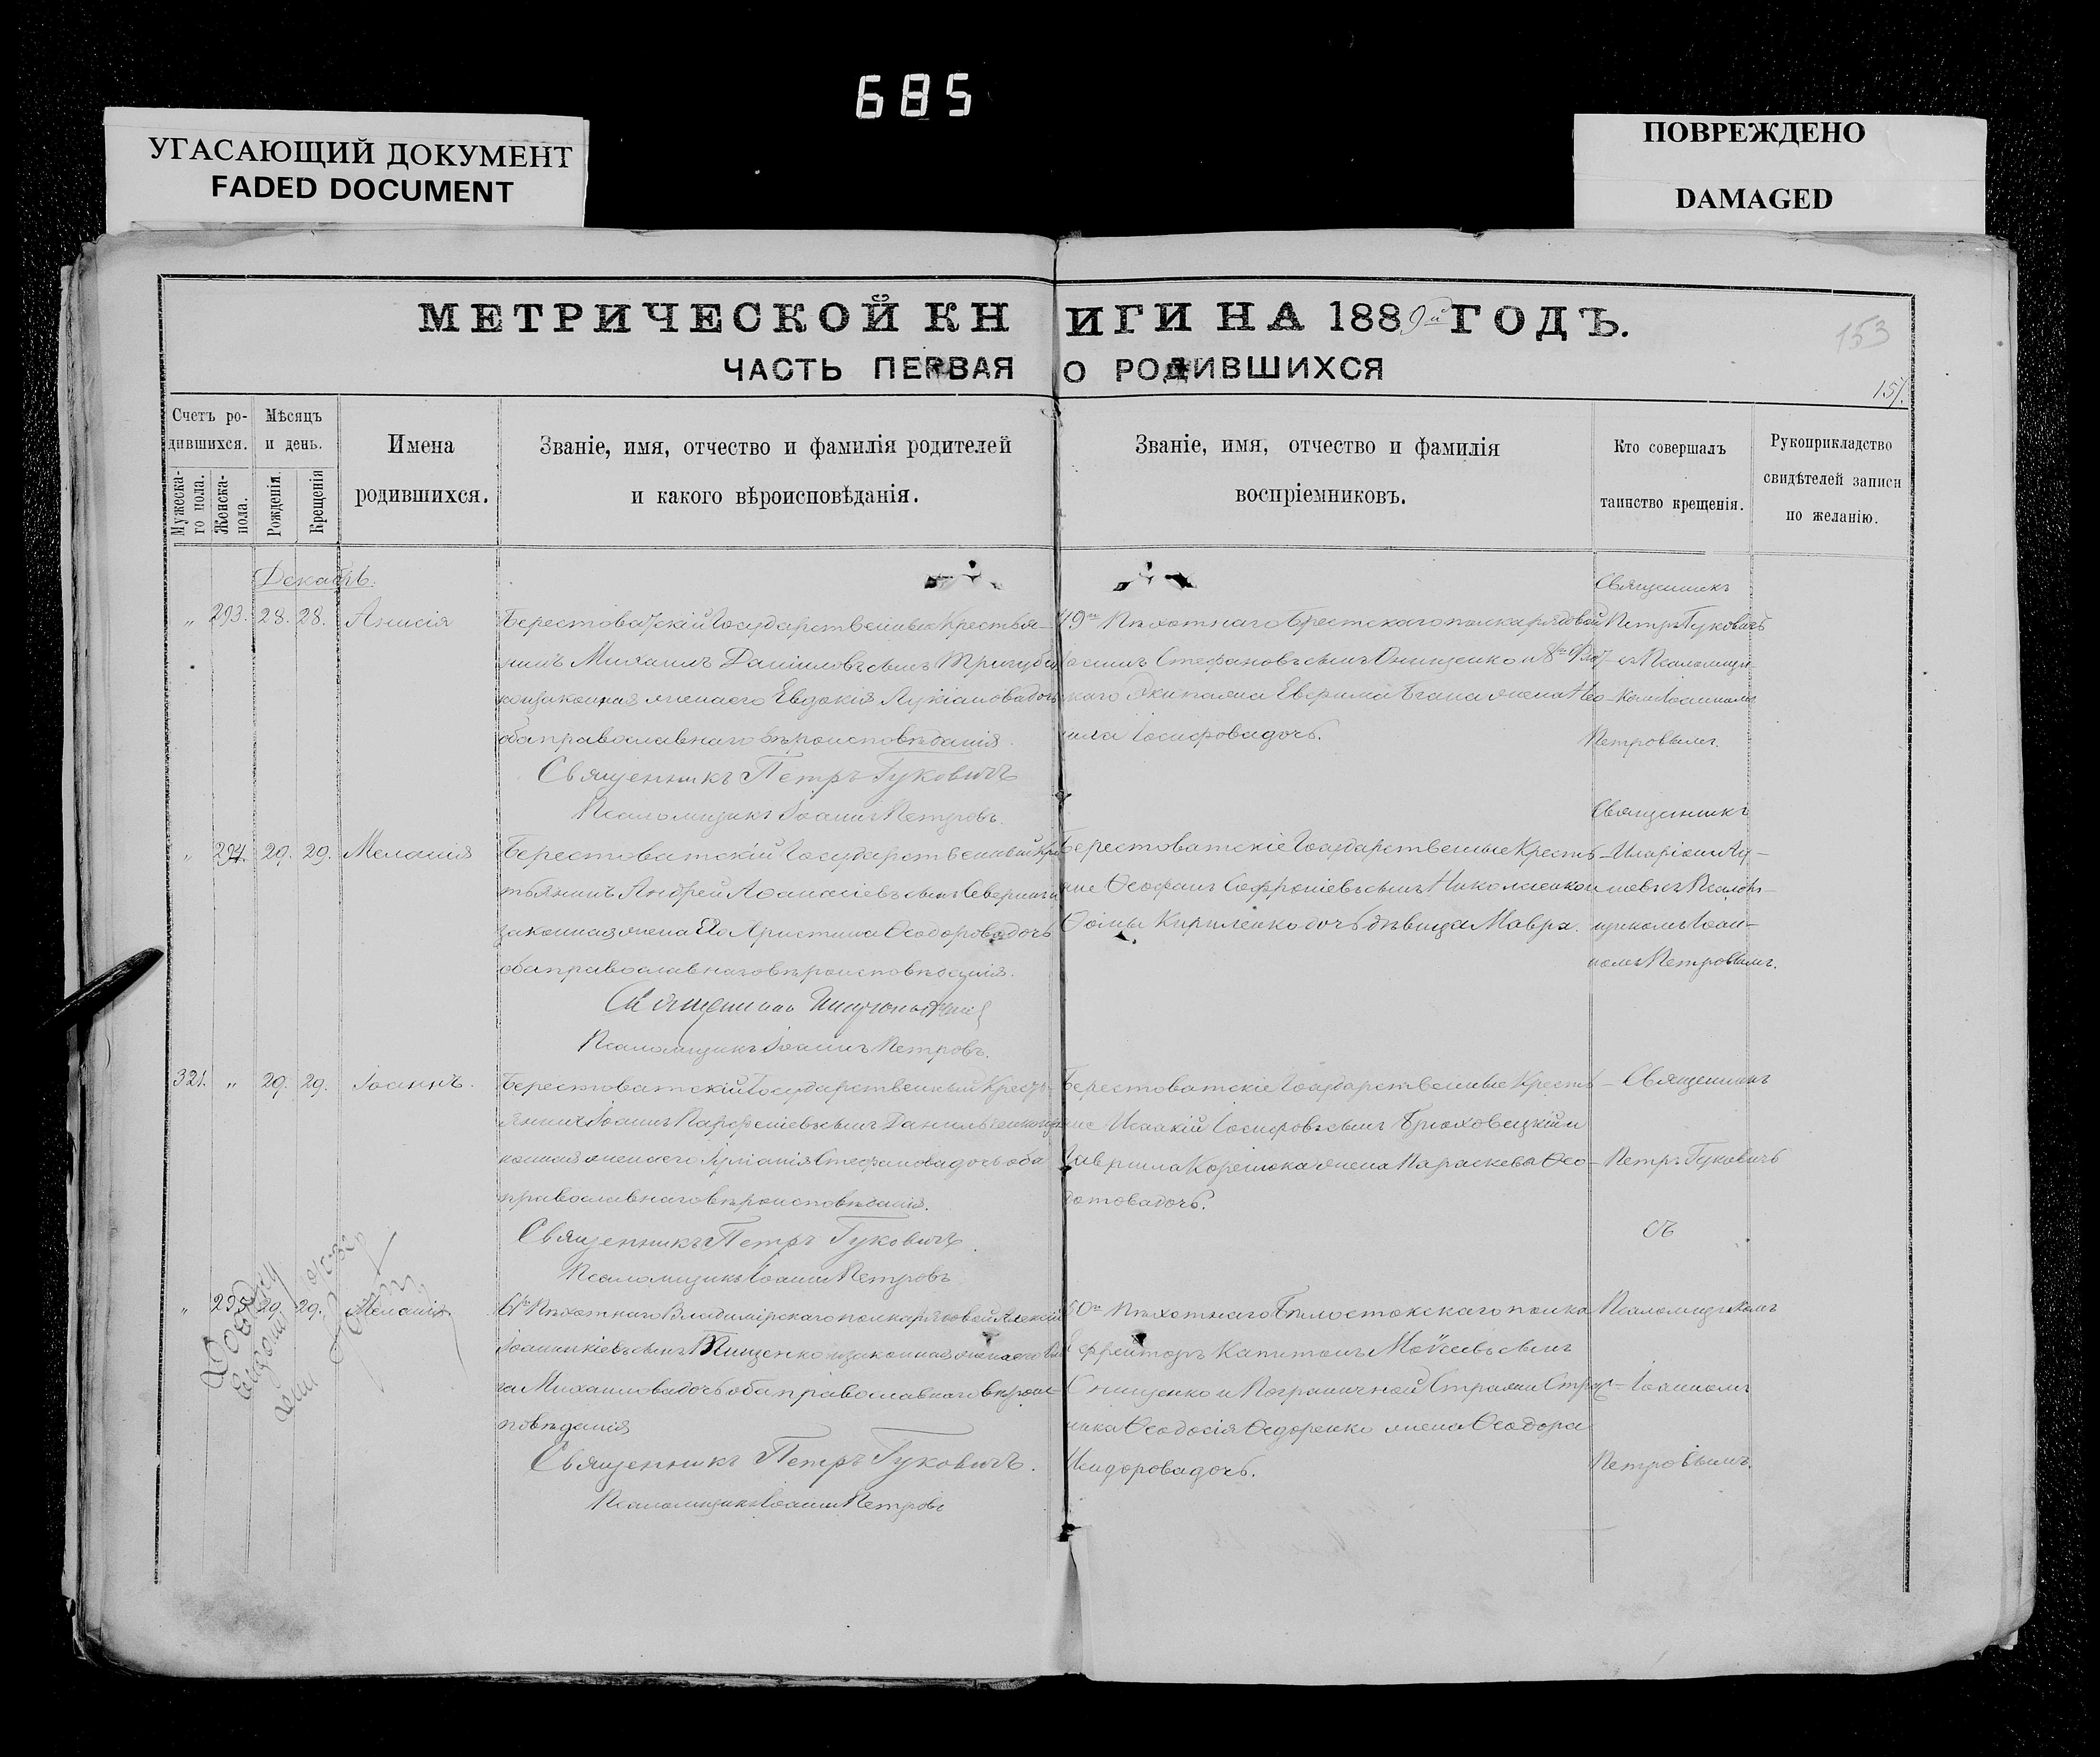 685
УГАСАЮЩИЙ ДОКУМЕНТ
FADED DOCUMENT
ПОВРЕЖДЕНО
DAMAGED
МЕТРИЧЕСКОЙ КНИГИ НА 1889й ГОДЪ.
153
ЧАСТЬ ПЕРВАЯ О РОДИВШИХСЯ
157.
Счетъ ро-
дившихся.
Мужеска-
го пола.
Женска-
пола.
Мѣсяцъ
и день.
Рожденія.
Крещенія
Имена
родившихся.
Званіе, имя, отчество и фамилія родителей
и какого вѣроисповѣданія.
Званіе, имя, отчество и фамилія
воспріемниковъ.
Кто совершалъ
таинство крещенія.
Рукоприкладство
свидѣтелей записи
по желанію.
Декабрь.
„ 293. 28. 28. Анисія
Берестоватскій Государственный Крестья-
нинъ Михаилъ Данииловъ сынъ
законная жена его Евдокія Лукіанова дочь
оба православнаго вѣроисповѣданія.
Священникъ Петръ Гуковичъ
Псаломщикъ Іоаннъ Петровъ.
Пѣхотнаго Брестскаго полка рядовой
Стефановъ сынъ Онищенко и
Екипажа Евфимія жена Нео-
нила Іосифова дочь.
Священникъ
Петръ Гуковичъ
съ Псаломщи-
комъ Іоанномъ
Петровымъ.
„ 294. 29. 29. Меланія
Берестоватскій Государственный Крес-
тьянинъ Андрей Аѳанасіевъ сынъ Северинъ и
законная жена Его Христина Ѳеодорова дочь
оба православнаго вѣроисповѣданія.
Священникъ
Псаломщикъ Іоаннъ Петровъ.
Берестоватскіе Государственные Кресть-
яне Ѳеофанъ Софроніевъ сынъ Николаенко и
Ѳомы Кириленко дочь дѣвица Мавра.
Священникъ
Иларіонъ
съ Псалом-
щикомъ Іоан-
номъ Петровымъ.
321. „ 29. 29. Іоаннъ.
Берестоватскій Государственный Кресть-
янинъ Іоаннъ Парѳеніевъ сынъ Данильченко и за-
конная жена его Іуліанія Стефанова дочь оба
православнаго вѣроисповѣданія.
Священникъ Петръ Гуковичъ
Псаломщикъ Іоаннъ Петровъ
Берестоватскіе Государственные Кресть-
яне Исаакій Іосифовъ сынъ Брюховецкій и
Гавриила жена Параскева Ѳео-
дотова дочь.
Священникъ
Петръ Гуковичъ
съ
„ 295. 29. 29. Меланія.
61го Пѣхотнаго Владимірскаго полка рядовой Алексій
Іоанникіевъ сынъ Тищенко и законная жена его
Михаилова дочь оба православнаго вѣроис-
повѣданія
Священникъ Петръ Гуковичъ.
Псаломщикъ Іоаннъ Петровъ
Пѣхотнаго Бѣлостокскаго полка
Ефрейторъ Капитонъ Моѵсеевъ сынъ
Онищенко и Пограничной Стражи Страж-
ника Ѳеодосія Ѳедоренко жена Ѳеодора
Исидорова дочь.
Псаломщикомъ
Іоанномъ
Петровымъ.